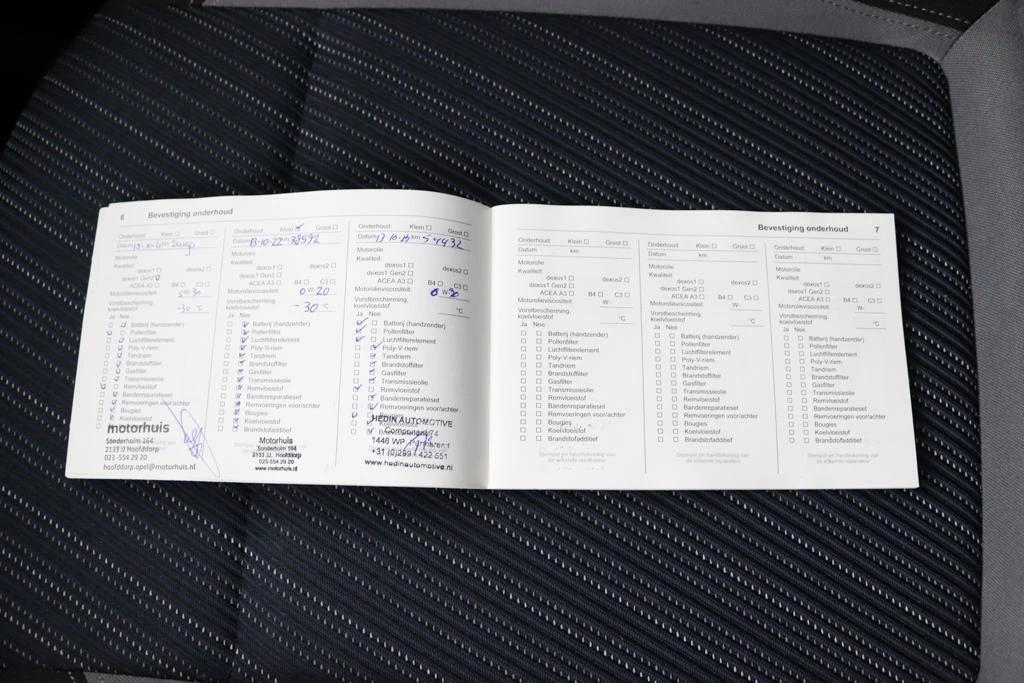 6 Bevestiging onderhoud
Onderhoud: Klein Groot
Datum km
Motorolie
Kwaliteit:
dexos1 dexos2
dexos1 Gen2
ACEA A3 B4 C3
Motorolieviscositeit: 5W-30
Vorstbescherming,
koelvloeistof -30 °C
Ja Nee
Batterij (handzender)
Pollenfilter
Luchtfilterelement
Poly-V-riem
Tandriem
Brandstoffilter
Gasfilter
Transmissieolie
Remvloeistof
Bandenreparatieset
Remvoeringen voor/achter
Bougies
Koelvloeistof
motorhuis
Sonderholm 164
2133 JJ Hoofddorp
023-554 29 20
hoofddorp.opel@motorhuis.nl
Onderhoud: Klein Groot
Datum 13-10-22 km 38592
Motorolie
Kwaliteit:
dexos1 dexos2
dexos1 Gen2
ACEA A3 B4 C3
Motorolieviscositeit: 0 W- 20
Vorstbescherming,
koelvloeistof -30 °C
Ja Nee
Batterij (handzender)
Pollenfilter
Luchtfilterelement
Poly-V-riem
Tandriem
Brandstoffilter
Gasfilter
Transmissieolie
Remvloeistof
Bandenreparatieset
Remvoeringen voor/achter
Bougies
Koelvloeistof
Brandstofadditief
Motorhuis
Sonderholm 164
2133 JJ, Hoofddorp
023-554 29 20
www.motorhuis.nl
Onderhoud: Klein Groot
Datum km 54432
Motorolie
Kwaliteit:
dexos1 dexos2
dexos1 Gen2
ACEA A3 B4 C3
Motorolieviscositeit: 0 W-30
Vorstbescherming,
koelvloeistof °C
Ja Nee
Batterij (handzender)
Pollenfilter
Luchtfilterelement
Poly-V-riem
Tandriem
Brandstoffilter
Gasfilter
Transmissieolie
Remvloeistof
Bandenreparatieset
Remvoeringen voor/achter
HEDIN AUTOMOTIVE
Component 74
1446 WP Purmerend
+31 (0)299 - 422 551
www.hedinautomotive.nl
Bevestiging onderhoud 7
Onderhoud: Klein Groot
Datum km
Motorolie
Kwaliteit:
dexos1 dexos2
dexos1 Gen2
ACEA A3 B4 C3
Motorolieviscositeit: W-
Vorstbescherming,
koelvloeistof °C
Ja Nee
Batterij (handzender)
Pollenfilter
Luchtfilterelement
Poly-V-riem
Tandriem
Brandstoffilter
Gasfilter
Transmissieolie
Remvloeistof
Bandenreparatieset
Remvoeringen voor/achter
Bougies
Koelvloeistof
Brandstofadditief
Stempel en handtekening van
de erkende reparateur
Onderhoud: Klein Groot
Datum km
Motorolie
Kwaliteit:
dexos1 dexos2
dexos1 Gen2
ACEA A3 B4 C3
Motorolieviscositeit: W-
Vorstbescherming,
koelvloeistof °C
Ja Nee
Batterij (handzender)
Pollenfilter
Luchtfilterelement
Poly-V-riem
Tandriem
Brandstoffilter
Gasfilter
Transmissieolie
Remvloeistof
Bandenreparatieset
Remvoeringen voor/achter
Bougies
Koelvloeistof
Brandstofadditief
Stempel en handtekening van
de erkende reparateur
Onderhoud: Klein Groot
Datum km
Motorolie
Kwaliteit:
dexos1 dexos2
dexos1 Gen2
ACEA A3 B4 C3
Motorolieviscositeit: W-
Vorstbescherming,
koelvloeistof °C
Ja Nee
Batterij (handzender)
Pollenfilter
Luchtfilterelement
Poly-V-riem
Tandriem
Brandstoffilter
Gasfilter
Transmissieolie
Remvloeistof
Bandenreparatieset
Remvoeringen voor/achter
Bougies
Koelvloeistof
Brandstofadditief
Stempel en handtekening van
de erkende reparateur